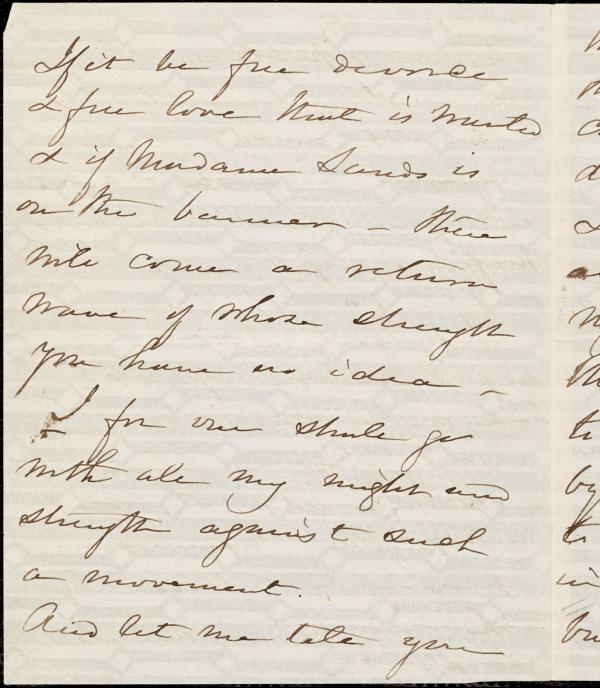 If it be free divorce
& free love that is wanted
& if Madame Sands is
on the banner – there
will come a return
wave of whose strength
you have no idea –
I for one shall go
with all my might and
strength against such
a movement.
And let me tell you